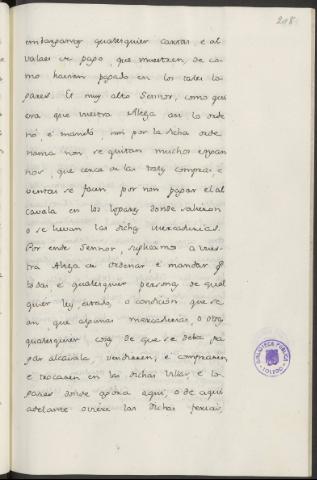 218
embargantes qualesquier cartas e al
valaes de pago, que muestren, de co
mo havian pagado en los tales lo
gares. E muy alto Señor, como qui
era que vuestra Alteza asi lo orde
nó é mandó, nin por la dicha orde
nanza non se quitan muchos engan
nos, que cerca de las tales compras, e
ventas se facen por non pagar el al
cavala en los logares donde salieron
o se llevan las dichas mercadurias.
Por ende Sennor, suplicamos a vues
tra Alteza de ordenar, é mandar q
todas, é qualesquier personas de qual
quier ley, estado, o condición, que se
an que algunas mercadurias, o otras
qualesquier cosas de que se deba pa
gar alcavala, vendieren, é compraren
e trocaren en las dichas Villas, e lo
gares donde agora aqui, o de aqui
adelante oviere las dichas ferias,
BIBLIOTECA PÚBLICA
TOLEDO